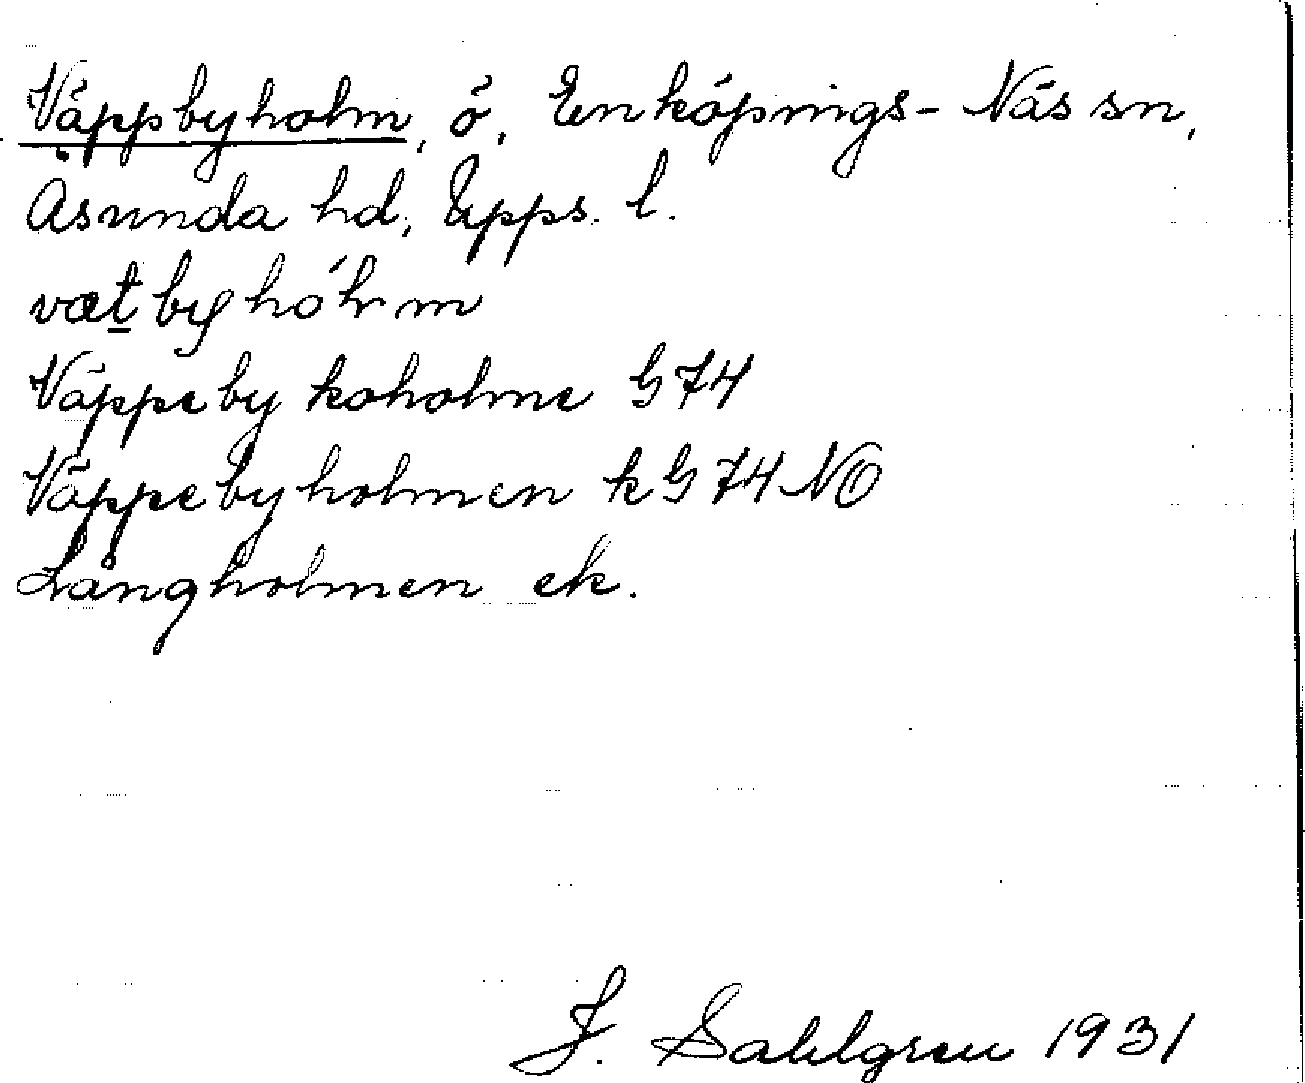 Väppbyholm, ö, Enköpings-Näs sn,
Åsunda hd, Upps. l.
væt by hó hm
Väppeby koholme G 74
Väppebyholmen k G 74 NO
Långholmen ek.
J. Sahlgren 1931